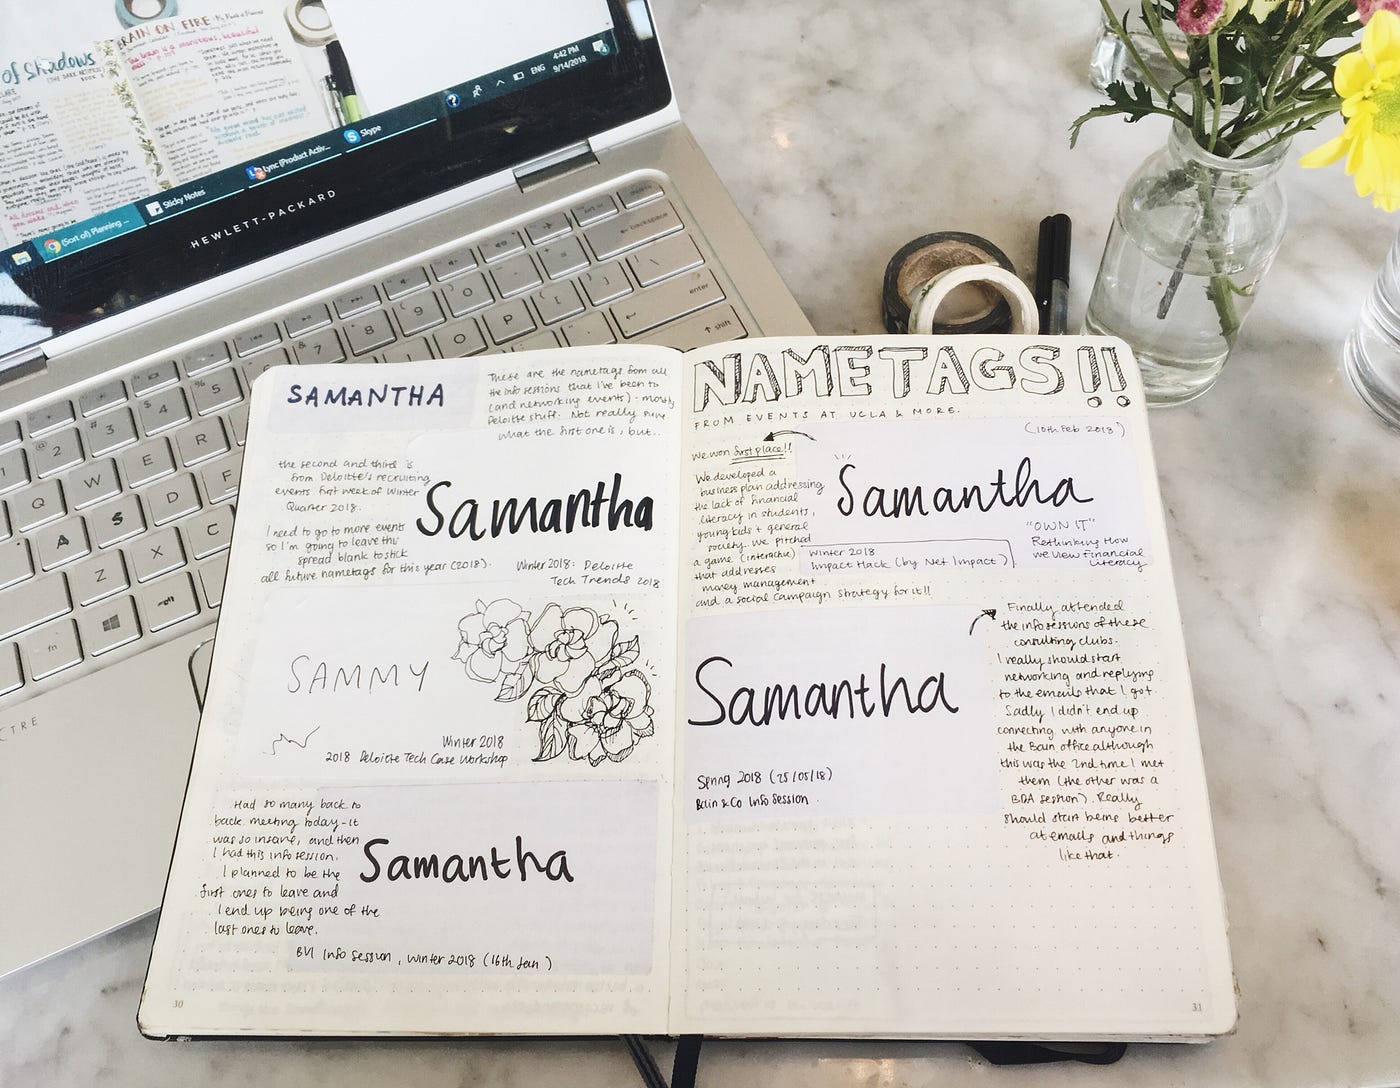 of Shadows
BRAIN ON FIRE
4:42 PM
9/14/2018
ENG
Skype
Lync (Product Activ...
Sticky Notes
(Sort of) Planning ...
HEWLETT-PACKARD
backspace
enter
shift
CTRE
SAMANTHA
These are the nametags from all
the info sessions that I've been to
(and networking events) - mostly
Deloitte stuff. Not really sure
what the first one is, but..
the second and third is
from Deloitte's recruiting
events first week of Winter
Quarter 2018.
I need to go to more events
so I'm going to leave this
spread blank to stick
all future nametags for this year (2018).
Samantha
Winter 2018: Deloitte
Tech Trends 2018
SAMMY
Winter 2018
2018 Deloitte Tech Case Workshop
Had so many back to
back meeting today - it
was so insane, and then
I had this info session.
I planned to be the
first ones to leave and
I end up being one of the
last ones to leave.
Samantha
BVI Info Session, Winter 2018 (16th Jan)
30
NAMETAGS!!
FROM EVENTS AT UCLA & MORE.
(10th Feb 2018)
We won first place!!
We developed a
business plan addressing
the lack of financial
literacy in students,
young kids + general
society. We pitched
a game (interactive)
that addresses
money management
and a social campaign strategy for it!!
Samantha
"OWN IT"
Rethinking How
we View Financial
Literacy
Winter 2018
Impact Hack (by Net Impact)
Samantha
Spring 2018 (25/05/18)
Bain & Co Info Session.
Finally attended
the info sessions of these
consulting clubs.
I really should start
networking and replying
to the emails that I got.
Sadly I didn't end up
connecting with anyone in
the Bain office although
this was the 2nd time I met
them (the other was a
BDA session). Really
should start being better
at emails and things
like that.
31